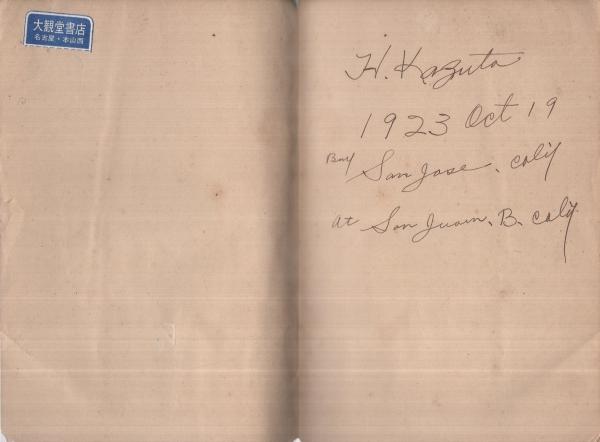 大観堂書店
名古屋・本山西
H. Kazuta
1923 Oct 19
San Jose, Calif
at San Juan. B. Calif